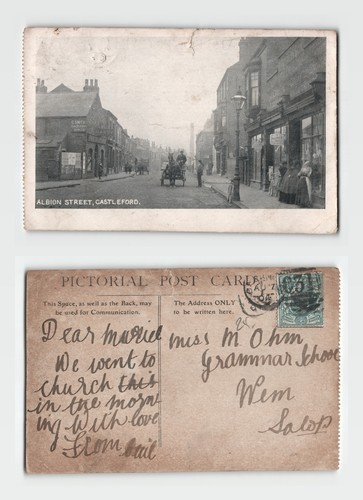 ALBION STREET, CASTLEFORD.
PICTORIAL POST CARD
This Space, as well as the Back, may
be used for Communication.
The Address ONLY
to be written here.
Dear Muriel
We went to
church this
in the morn
ing with love
From
Miss M Ohm
Grammar School
Wem
Salop